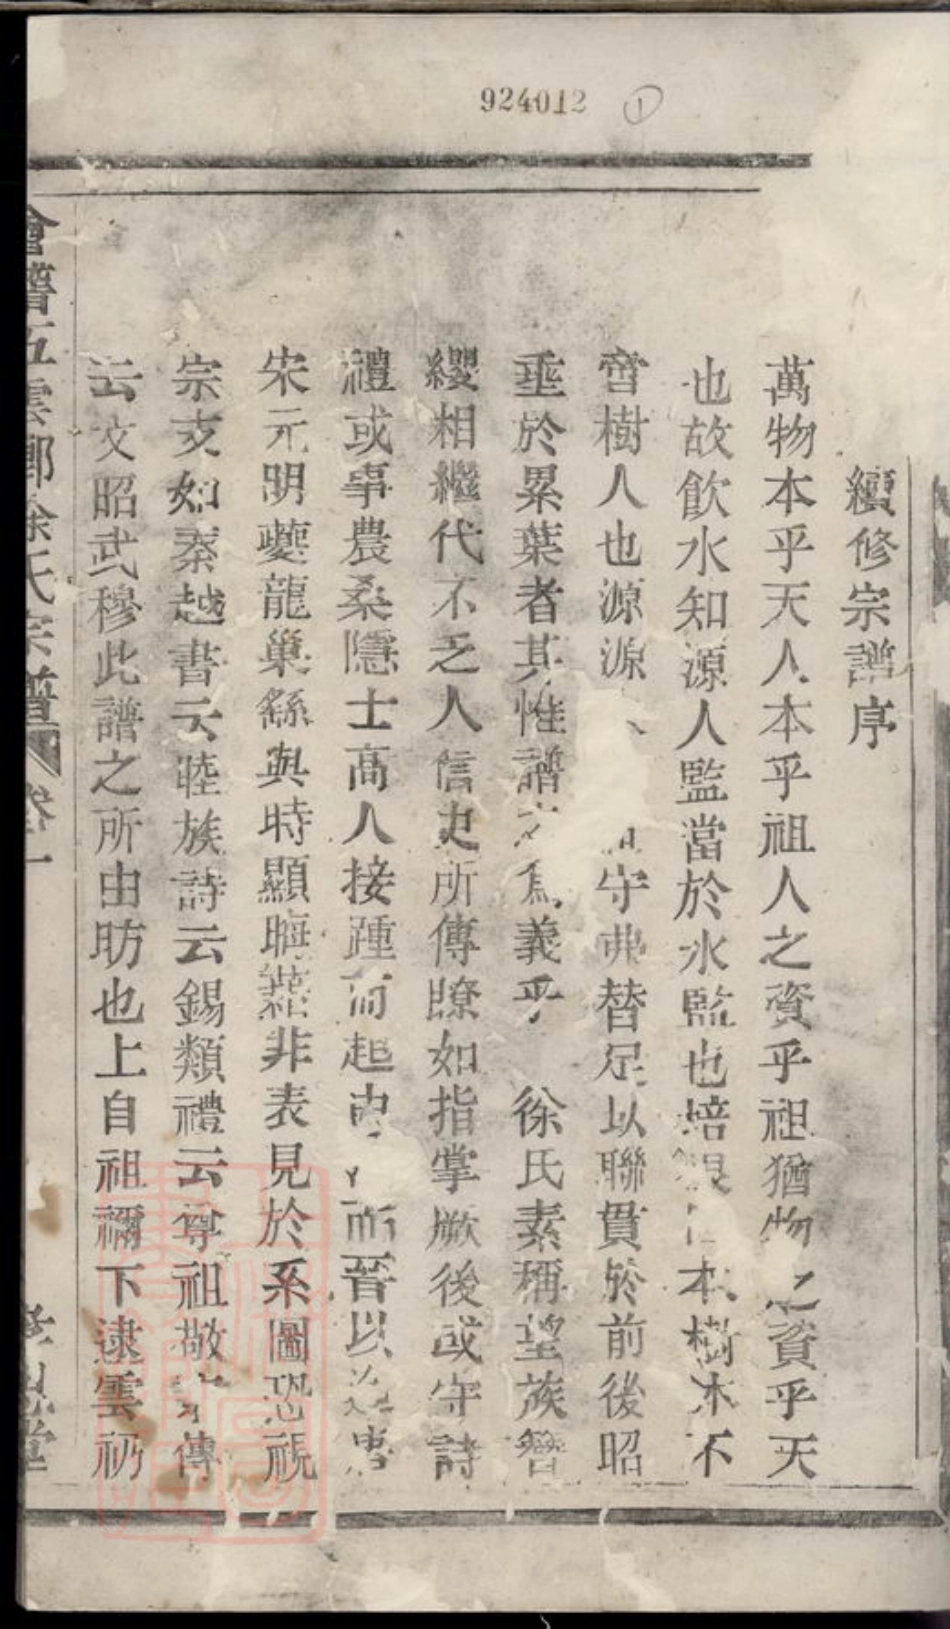 924012 ①
續修宗譜序
萬物本乎天人本乎祖人之資乎祖猶物之資乎天
也故飲水知源人監當於水監也培根 本樹木不
啻樹人也源源 守弗替足以聯貫於前後昭
垂於累葉者其惟譜之為義乎 徐氏素稱望族簪
纓相繼代不乏人信史所傳瞭如指掌厥後或守詩
禮或事農桑隱士高人接踵而起由 而晉以 唐
宋元明夔龍巢繇與時顯晦 非表見於系圖恐視
宗支如秦越書云睦族詩云錫類禮云尊祖敬宗傳
云文昭武穆此譜之所由昉也上自祖禰下逮雲礽
會譜五雲鄉徐氏宗譜 卷一